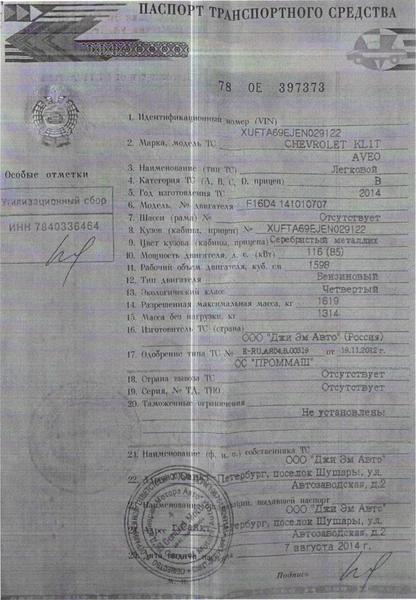 ПАСПОРТ ТРАНСПОРТНОГО СРЕДСТВА
78 ОЕ 397373
1. Идентификационный номер (VIN)
XUFTA69EJEN029122
2. Марка, модель ТС CHEVROLET KLIT
AVEO
3. Наименование (тип ТС) Легковой
Особые отметки
4. Категория ТС (А, В, С, D, прицеп) В
5. Год изготовления ТС 2014
Утилизационный сбор
6. Модель, № двигателя F16D4 141010707
7. Шасси (рама) № Отсутствует
ИНН 7840336464
8. Кузов (кабина, прицеп) № XUFTA69EJEN029122
9. Цвет кузова (кабины, прицепа) Серебристый металлик
10. Мощность двигателя, л. с. (кВт) 116 (85)
11. Рабочий объем двигателя, куб. см 1598
12. Тип двигателя Бензиновый
13. Экологический класс Четвертый
14. Разрешенная максимальная масса, кг 1619
15. Масса без нагрузки, кг 1314
16. Изготовитель ТС (страна)
ООО "Джи Эм Авто" (Россия)
17. Одобрение типа ТС № от 19.11.2012 г.
ОС "ПРОММАШ"
18. Страна вывоза ТС Отсутствует
19. Серия, № ТД, ТПО Отсутствует
20. Таможенные ограничения
Не установлены
21. Наименование (ф. и. о.) собственника ТС
ООО "Джи Эм Авто"
22. Петербург, поселок Шушары, ул.
Автозаводская, д.2
23. Наименование организации, выдавшей паспорт
ООО "Джи Эм Авто"
24. Петербург, поселок Шушары, ул.
Автозаводская, д.2
25. Дата выдачи паспорта
7 августа 2014 г.
Подпись